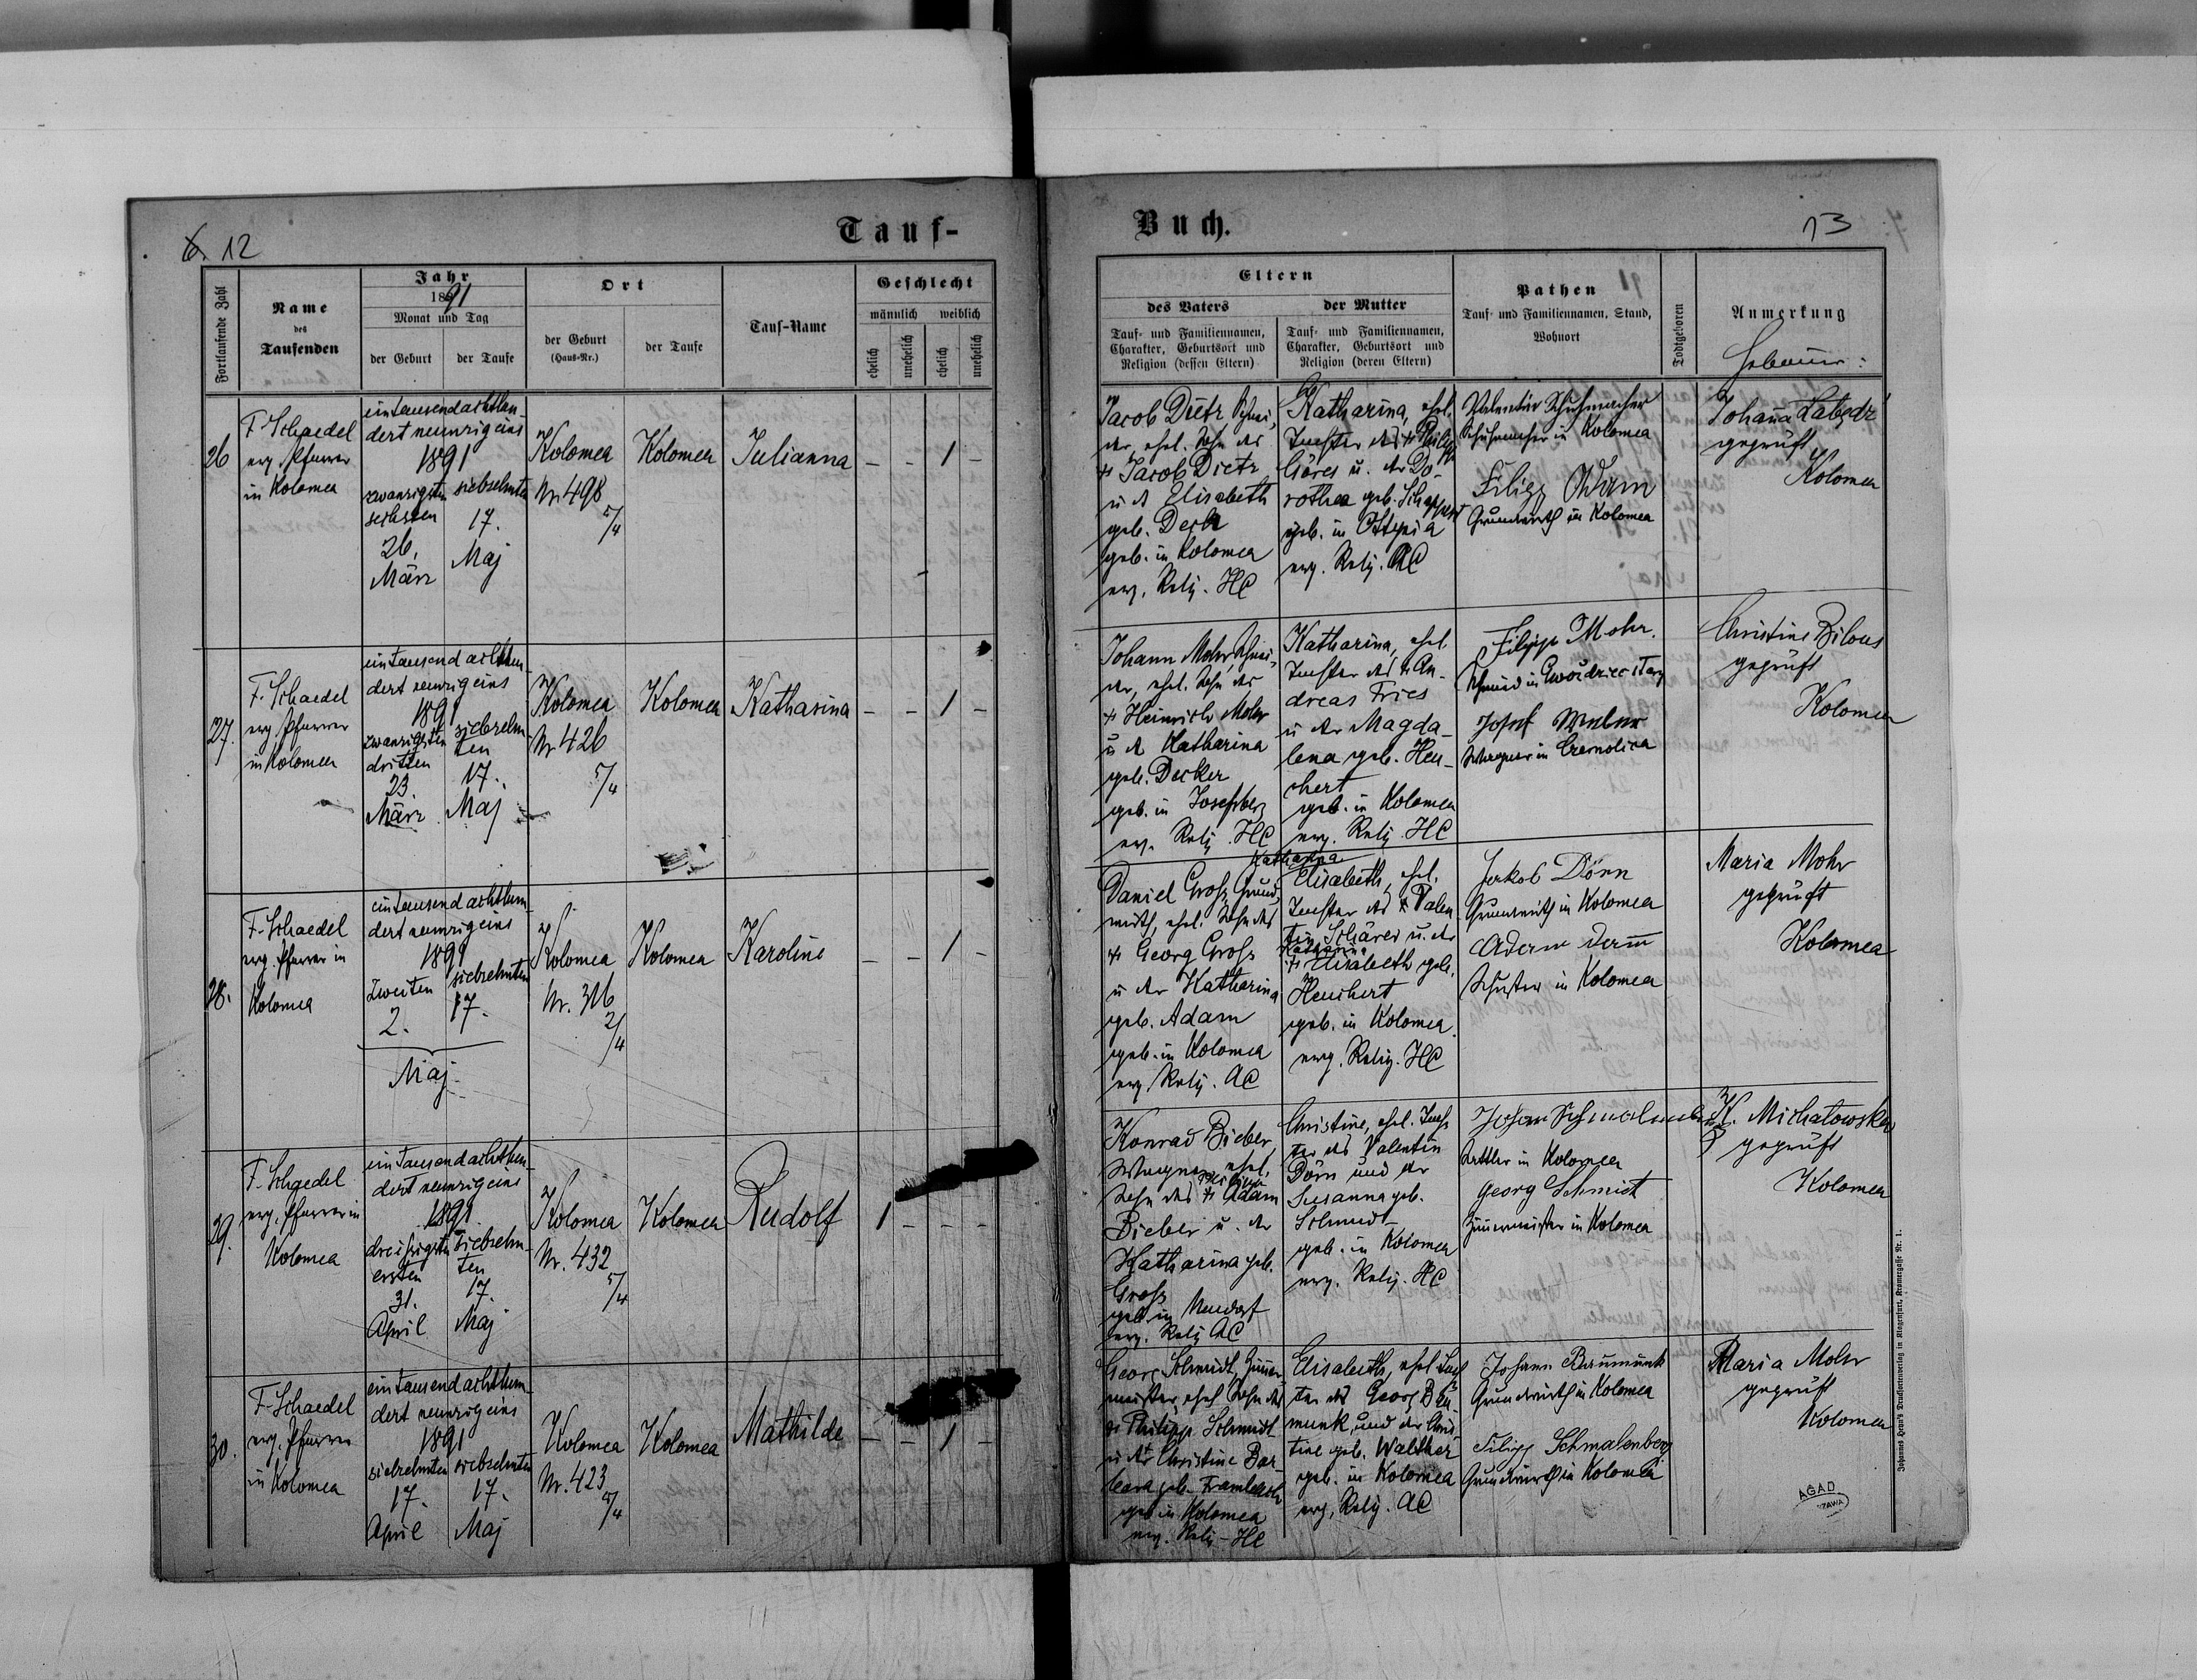 6. 12
Tauf-
Fortlaufende Zahl
Name
des
Taufenden
Jahr
1891
Monat und Tag
der Geburt
der Taufe
Ort
der Geburt
(Haus-Nr.)
der Taufe
Tauf-Name
Geschlecht
männlich
weiblich
ehelich
unehelich
ehelich
unehelich
26
F. Schaedel
evg. Pfarrer
in Kolomea
ein tausend achthun-
dert neunzig eins
1891
zwanzigsten
sechsten
26.
März
siebzehnten
17.
Maj
Kolomea
Nr. 498
5/4
Kolomea
Julianna
- - 1 -
27.
F. Schaedel
evg. Pfarrer
in Kolomea
ein tausend achthun-
dert neunzig eins
1891
zwanzigsten
dritten
23.
März
siebzehn
ten
17.
Maj
Kolomea
Nr 426
5/4
Kolomea
Katharina
- - 1 -
28.
F. Schaedel
evg. Pfarrer in
Kolomea
ein tausend achthun-
dert neunzig eins
1891
zweiten
2.
siebzehnten
17.
Maj
Kolomea
Nr. 316
2/4
Kolomea
Karoline
- - 1 -
29.
F. Schaedel
evg. Pfarrer in
Kolomea
ein tausend achthun-
dert neunzig eins
1891
dreißigsten
ersten
31.
April
siebzehn-
ten
17.
Maj
Kolomea
Nr. 432
5/4
Kolomea
Rudolf
1 - - -
30.
F. Schaedel
evg. Pfarrer
in Kolomea
ein tausend achthun-
dert neunzig eins
1891
siebzehnten
17.
April
siebzehnten
17.
Maj
Kolomea
Nr. 423
5/4
Kolomea
Mathilde
- - 1 -
Buch.
13
Eltern
des Vaters
Tauf- und Familiennamen,
Charakter, Geburtsort und
Religion (dessen Eltern)
der Mutter
Tauf- und Familiennamen,
Charakter, Geburtsort und
Religion (deren Eltern)
Pathen
Tauf- und Familiennamen, Stand,
Wohnort
Todtgeboren
Anmerkung
Hebamme:
Jacob Dietz Schnei-
der, ehel. Sohn des
† Jacob Dietz
u. d. Elisabeth
geb.
geb. in Kolomea
evg. Relig. HC
Katharina, ehel.
Tochter des † Philipp
u. der Do-
rothea geb.
geb. in Ottynia
evg. Relig. AC
Valentin Schuhmacher
Schuhmacher in Kolomea
Filipp
Grundwirth in Kolomea
Johana
geprüft
Kolomea
Johann Mohr, Schnei-
der, ehel. Sohn des
† Heinrich Mohr
u. d. Katharina
geb. Decker
geb. in Josefsberg
ev. Relig. HC
Katharina, ehel.
Tochter des † An-
dreas Fries
u. der Magda-
lena geb. Heu-
chert
geb. in Kolomea
evg. Relig. HC
Filipp Mohr.
Schmied in
Josef
Wagner in
Christine Bilous
geprüft
Kolomea
Daniel Groß, Grund-
wirth, ehel. Sohn des
† Georg Groß
u. der Katharina
geb. Adam
geb. in Kolomea
evg. Relig. AC
Katharina
Elisabeth, ehel.
Tochter des † Valen
tin Schärer u. der
Katharina
† Elisabeth geb.
Heuchert
geb. in Kolomea.
evg. Relig. HC
Jakob Dörn
Grundwirth in Kolomea
Adam
Schuster in Kolomea
Maria Mohr
geprüft
Kolomea
Konrad Bieber
Wagner, ehel.
Philipp
Sohn des † Adam
Bieber u. der
Katharina geb.
Groß
geb. in Neudorf
evg. Relig AC
Christine, ehel. Toch-
ter des Valentin
Dörn und der
Susanna geb.
Schmidt
geb. in Kolomea
evg. Relig. HC
Johan Schmalenberg
Sattler in Kolomea
Georg Schmidt
Zimmermeister in Kolomea
K. Michalowska
geprüft
Kolomea
Georg Schmidt, Zimmer-
meister, ehel. Sohn des
† Philipp Schmidt
u. der Christine Bar-
bara geb.
geb. in Kolomea
evg. Relig. HC
Elisabeth, ehel. Toch
ter des Georg Bau-
munk, und der Chris-
tine geb. Walther
geb. in Kolomea
evg. Relig. AC
Johann Baumunk
Grundwirth in Kolomea
Filipp Schmalenberg
Grundwirth in Kolomea
Maria Mohr
geprüft
Kolomea
AGAD
Johannes Heyn's Drucksortenverlag in Klagenfurt, Kramergasse Nr. 1.